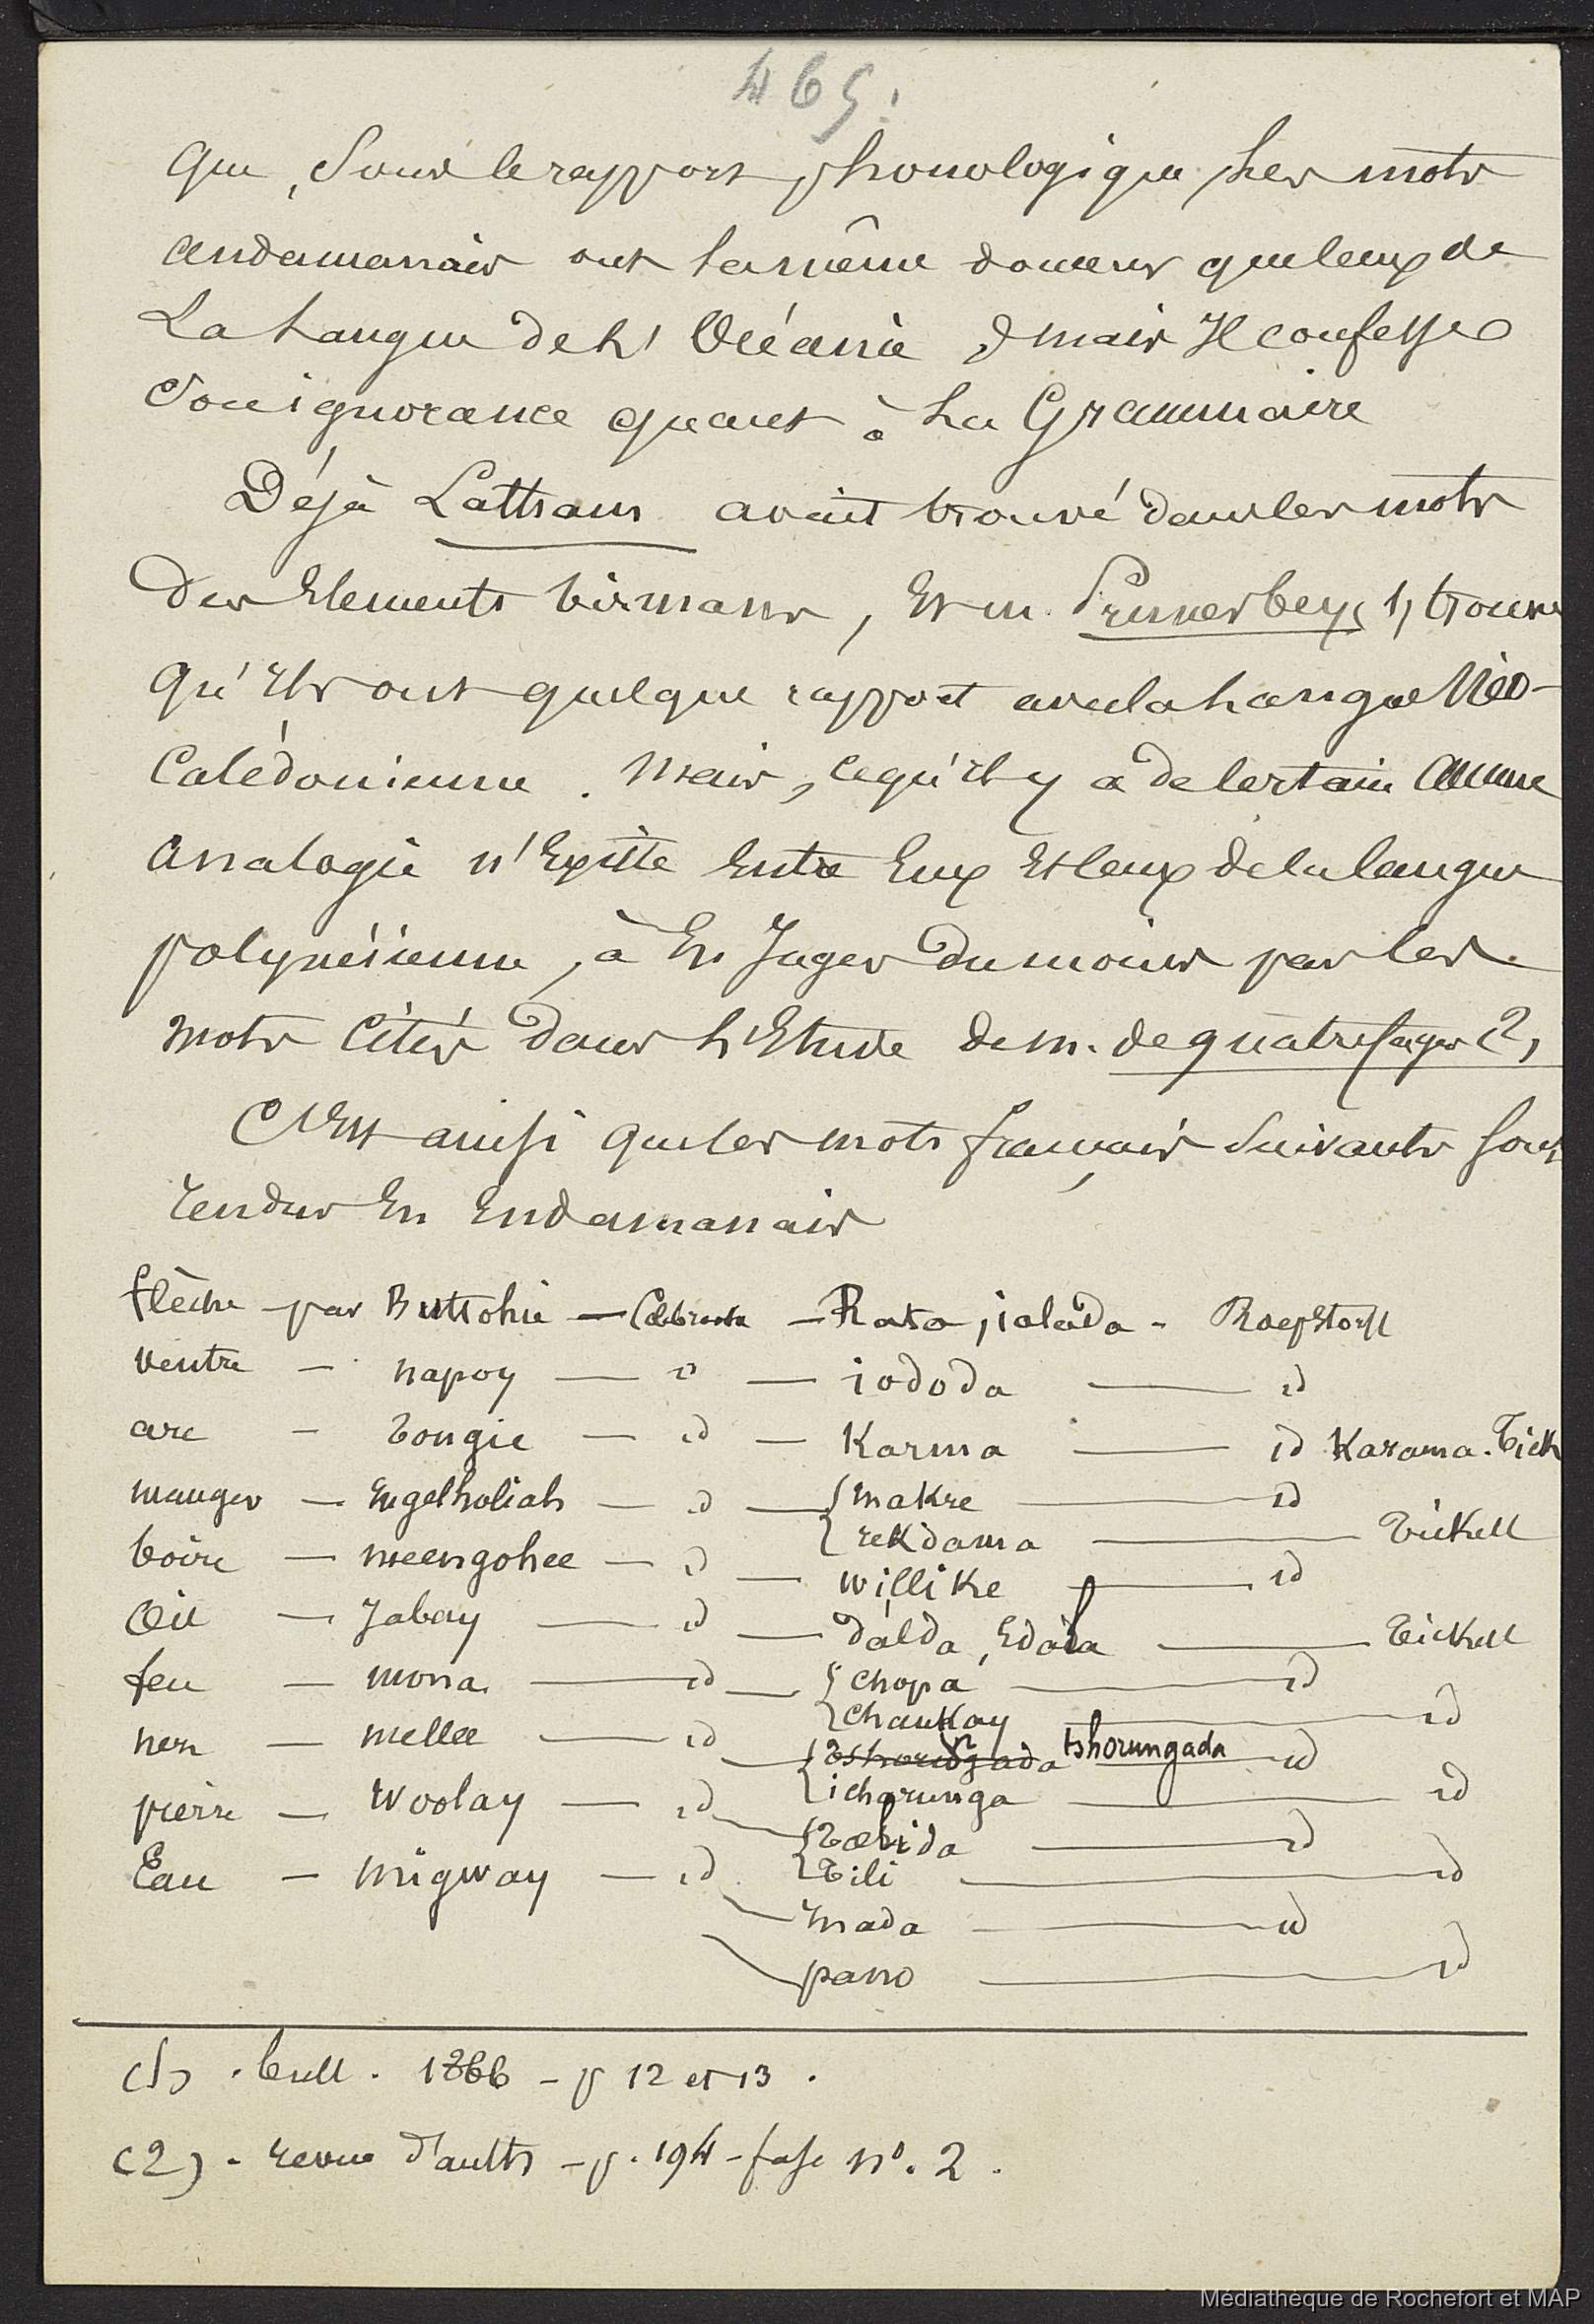 465.
que, Sous le rapport phonologique, les mots
andamanais ont la même douceur que ceux de
La Langue de l'Océanie, mais Il confesse
Son ignorance quant à La Grammaire
Déjà Latham avait trouvé dans les mots
des Elements birmans, Et m. Prunerbey, 1) trouve
qu'Ils ont quelque rapport avec la Langue Néo-
Calédonienne. Mais, ce qu'il y a de certain Aucune
Analogie n'Existe Entre Eux Et ceux de la langue
polynésienne, à En Juger du moins par les
mots Cités dans L'Etude de m. de quatrefages 2)
C'Est ainsi que les mots français Suivants sont
rendus En Endamanais
flèche - par Buttohie - Colebrooke - Rata, jalada - Roepstorff
ventre - napoy - id - jododa - id
arc - tongie - id - Karma - id Karama. Tick
manger - Engelholiah - id - { makre - id
{ rekdama - Tickell
boire - meengohee - id - willike - id
Oeil - Jabay - id - dalda, Edala - Tickell
feu - mona - id - { chopa - id
{ chaukay - id
nez - mellee - id - { tshorungada - id
{ icharunga - id
pierre - Woolay - id - { Taelida - id
{ Tili - id
Eau - migway - id - mada - id
pano - id
(1) . bull. 1866 - p 12 et 13.
(2) - revue d'anth - p. 194 - fasc nº. 2.
Médiathèque de Rochefort et MAP